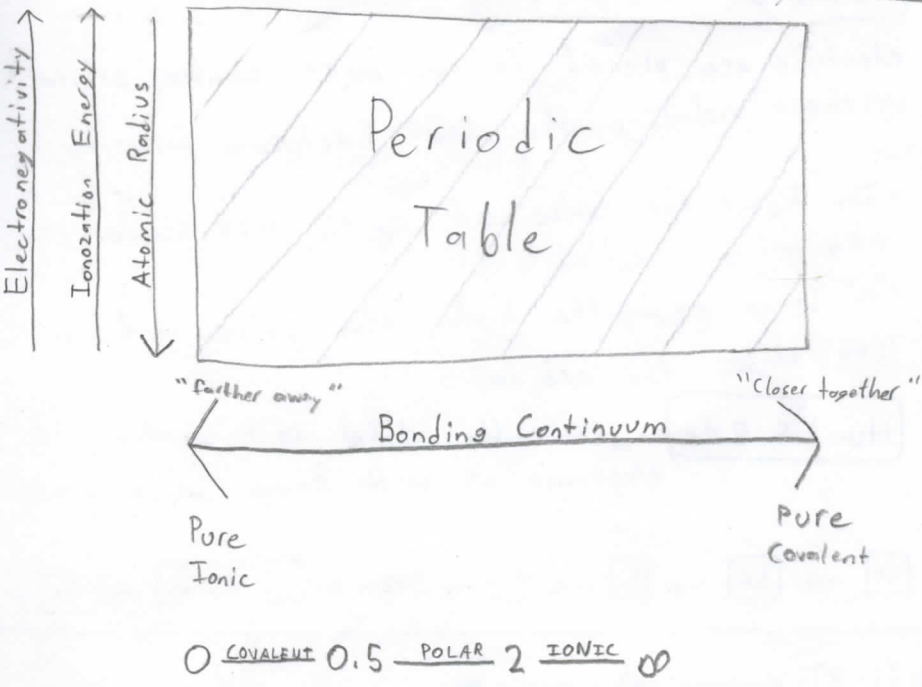 Electronegativity
Ionozation Energy
Atomic Radius
Periodic
Table
"farther away"
"Closer together"
Bonding Continuum
Pure
Ionic
Pure
Covalent
0 COVALENT 0.5 POLAR 2 IONIC ∞